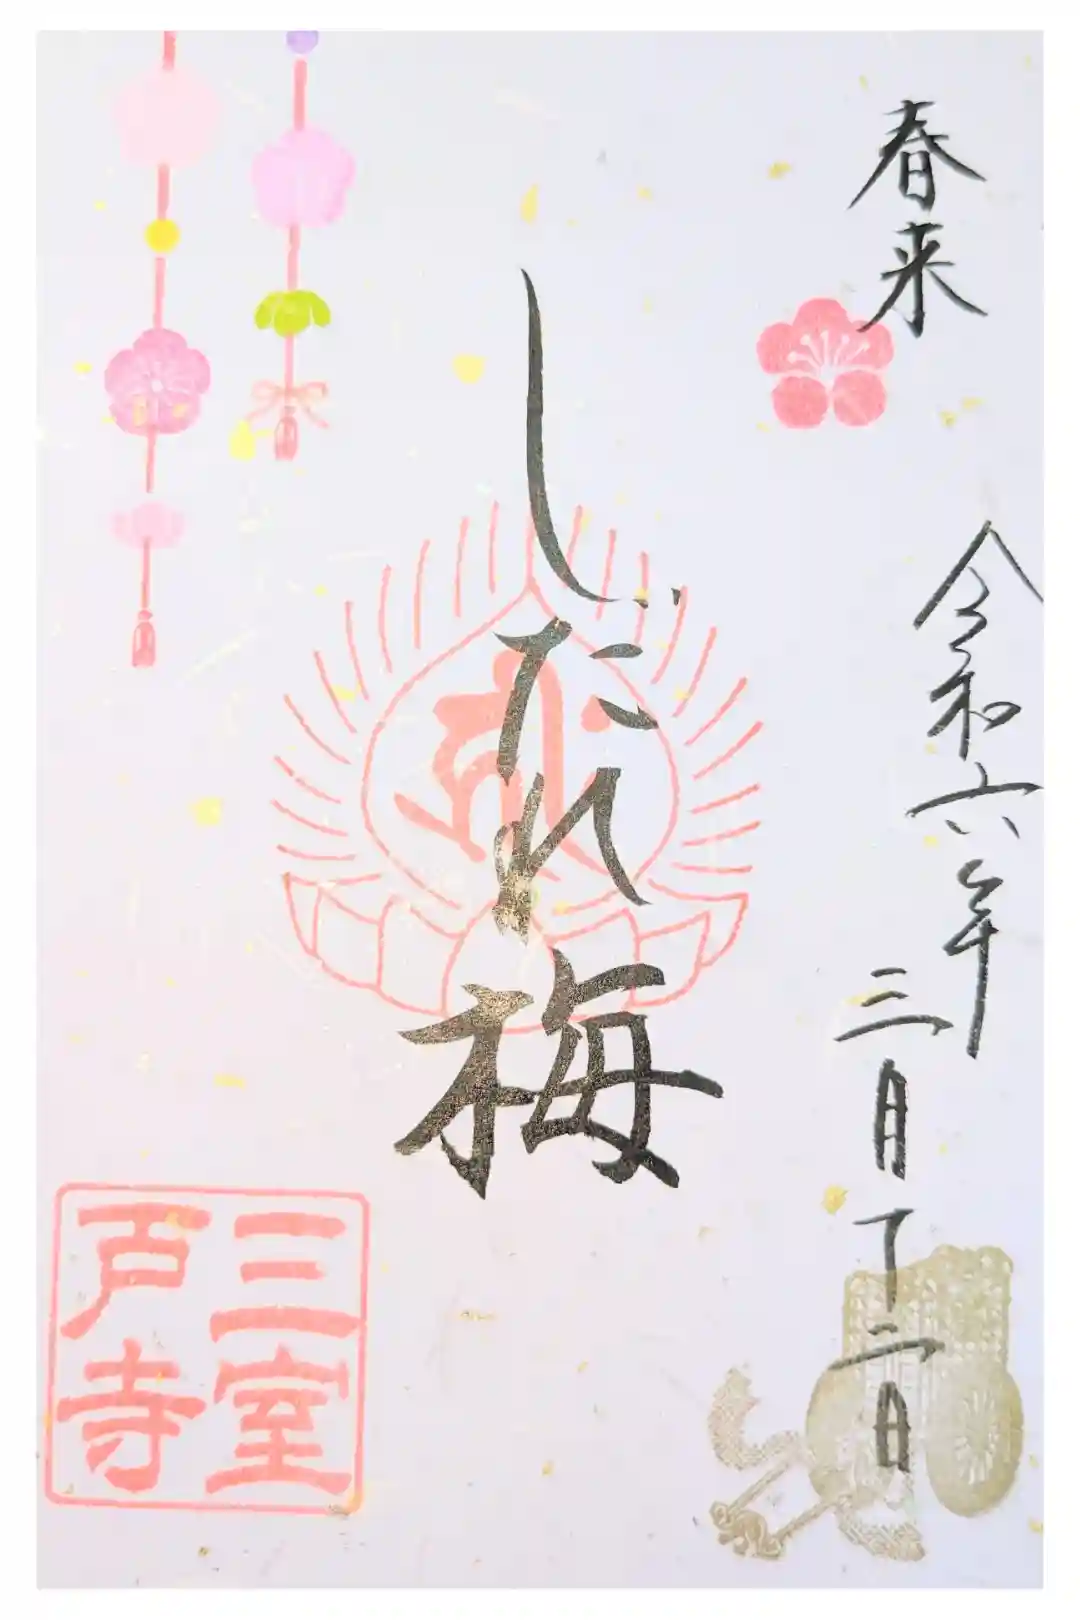 春来
令和六年
三月十二日
しだれ梅
三室
戸寺